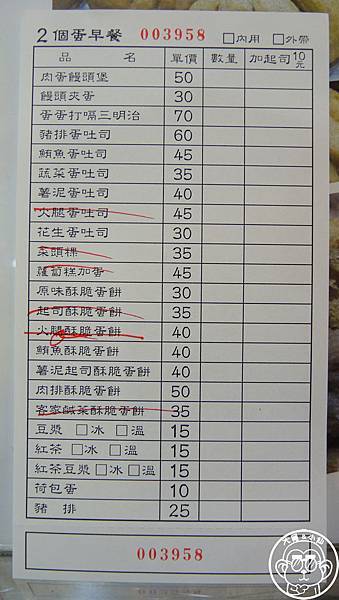 2個蛋早餐 003958 □內用 □外帶
品 名 單價 數量 加起司10元
肉蛋饅頭堡 50
饅頭夾蛋 30
蛋蛋打嗝三明治 70
豬排蛋吐司 60
鮪魚蛋吐司 45
蔬菜蛋吐司 35
薯泥蛋吐司 40
火腿蛋吐司 45
花生蛋吐司 40
菜頭粿 35
蘿蔔糕加蛋 45
原味酥脆蛋餅 30
起司酥脆蛋餅 35
火腿酥脆蛋餅 40
鮪魚酥脆蛋餅 40
薯泥起司酥脆蛋餅 40
肉排酥脆蛋餅 50
客家鹹菜酥脆蛋餅 35
豆漿 □冰 □溫 15
紅茶 □冰 □溫 15
紅茶豆漿□冰 □溫 15
荷包蛋 10
豬 排 25
003958